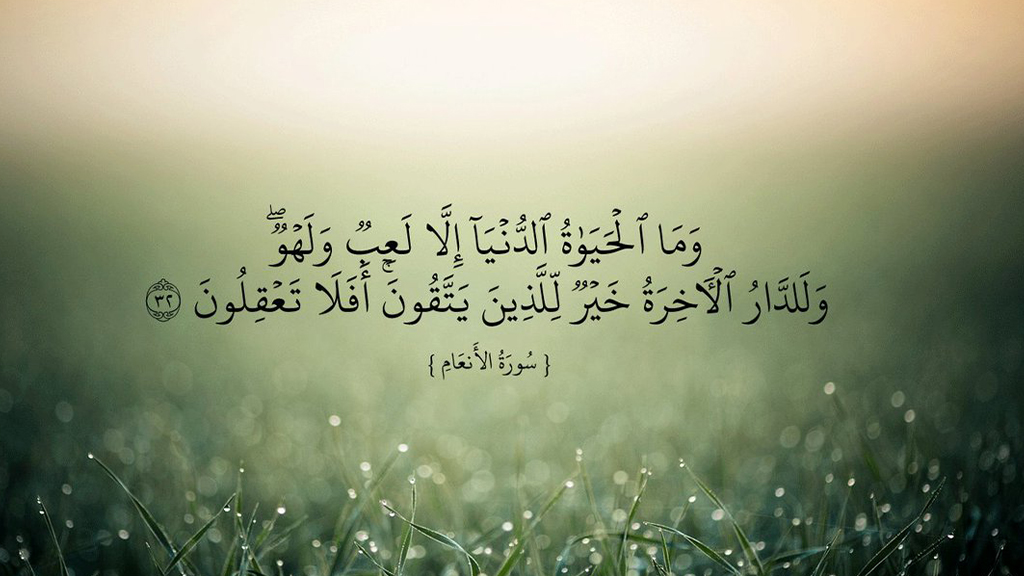 وَمَا ٱلْحَيَوٰةُ ٱلدُّنْيَآ إِلَّا لَعِبٌ وَلَهْوٌ ۖ
وَلَلدَّارُ ٱلْأَخِرَةُ خَيْرٌ لِّلَّذِينَ يَتَّقُونَ ۚ أَفَلَا تَعْقِلُونَ ٣٢
{ سُورَةُ الأَنعَامِ }